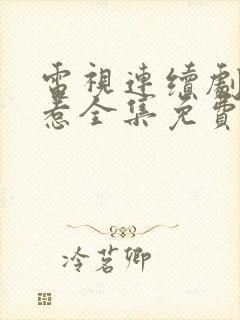 電視連續劇
惹全集免費
冷茗卿